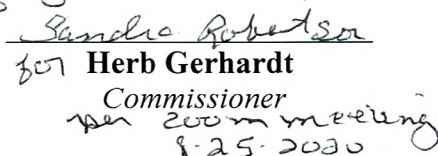 Sandra Robertson
for Herb Gerhardt
Commissioner
per zoom meeting
8-25-2020